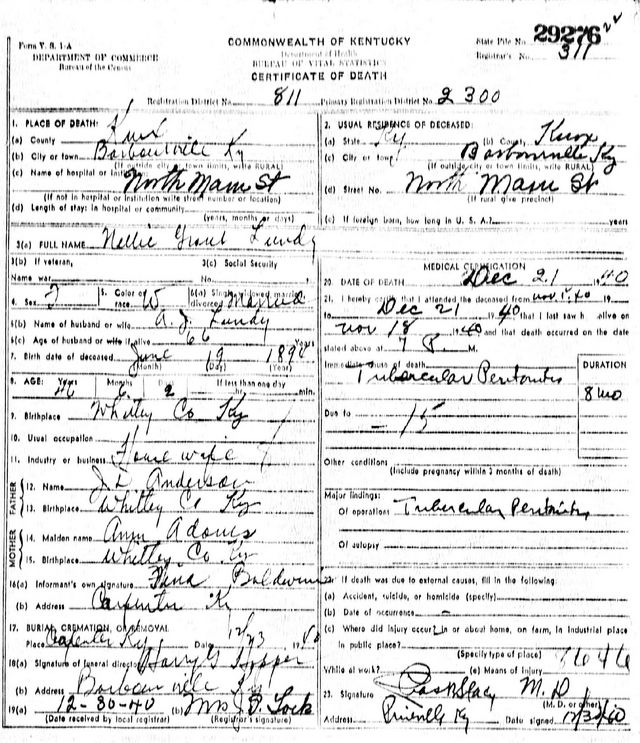 29276
Form V. S. 1-A
COMMONWEALTH OF KENTUCKY
State File No.
DEPARTMENT OF COMMERCE
Department of Health
Registrar's No. 311
Bureau of the Census
BUREAU OF VITAL STATISTICS
CERTIFICATE OF DEATH
Registration District No. 811 Primary Registration District No. 2300
1. PLACE OF DEATH:
(a) County Knox
(b) City or town Barbourville Ky
(If outside city or town limits, write RURAL)
(c) Name of hospital or institution: North Main St
(If not in hospital or institution write street number or location)
(d) Length of stay: in hospital or community
(years, months or days)
2. USUAL RESIDENCE OF DECEASED:
(a) State Ky (b) County Knox
(c) City or town Barbourville Ky
(If outside city or town limits, write RURAL)
(d) Street No. North Main St
(If rural give precinct)
(e) If foreign born, how long in U. S. A.? years
3(a) FULL NAME Nellie Grant Lundy
3(b) If veteran, 3(c) Social Security
Name war No.
4. Sex F 5. Color or race W 6(a) Single, widowed, married, divorced Married
6(b) Name of husband or wife A. J. Lundy
6(c) Age of husband or wife if alive 66 Years
7. Birth date of deceased June 19
(Month) (Day) (Year)
8. AGE: Years 46 Months 6 Days 2 If less than one day
hr. min.
9. Birthplace Whitley Co Ky
10. Usual occupation
11. Industry or business House wife
FATHER
12. Name J. L. Anderson
13. Birthplace Whitley Co Ky
MOTHER
14. Maiden name Ann Adams
15. Birthplace Whitley Co Ky
16(a) Informant's own signature Baldwin
(b) Address Carpenter Ky
17. BURIAL, CREMATION, OR REMOVAL
Place Carpenter Ky Date 12/23 1940
18(a) Signature of funeral director Harry S Hopper
(b) Address Barbourville Ky
19(a) 12-30-40 (b) Mrs
(Date received by local registrar) (Registrar's signature)
MEDICAL CERTIFICATION
20. DATE OF DEATH Dec 21 1940
21. I hereby certify that I attended the deceased from Nov 1, 40 19
to Dec 21 1940 that I last saw h alive on
Nov 18 1940 and that death occurred on the date
stated above at 7 P. M.
Immediate cause of death DURATION
Tubercular Peritonitis 8 mo
Due to
15
Other conditions
(Include pregnancy within 3 months of death)
Major findings:
Of operations Tubercular Peritonitis
Of autopsy
22. If death was due to external causes, fill in the following:
(a) Accident, suicide, or homicide (specify)
(b) Date of occurrence
(c) Where did injury occur? in or about home, on farm, in Industrial place
in public place?
(Specify type of place)
While at work? (e) Means of injury
23. Signature M. D.
(M. D. or other)
Address Pineville Ky Date signed 12/30/40